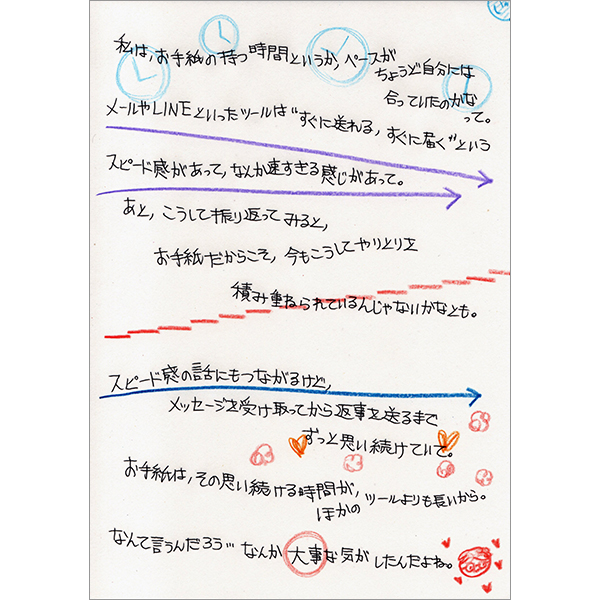 私は、お手紙の持つ時間というか、ペースが
ちょうど自分には
合っていたのかな
って。
メールやLINEといったツールは“すぐに送れる、すぐに届く”という
スピード感があって、なんか速すぎる感じがあって。
あと、こうして振り返ってみると、
お手紙だからこそ、今もこうしてやりとりを
積み重ねられているんじゃないかなとも。
スピード感の話にもつながるけど、
メッセージを受け取ってから返事を送るまで
ずっと思い続けていて。
お手紙は、その思い続ける時間が、
ほかのツールよりも長いから。
なんて言うんだろう… なんか大事な気がしたんだよね。